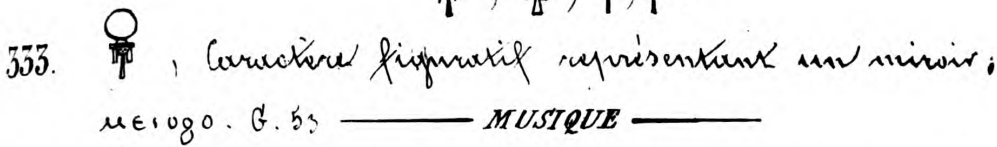 333. , Caractère figuratif représentant un miroir;
G. 53 ——— MUSIQUE ———